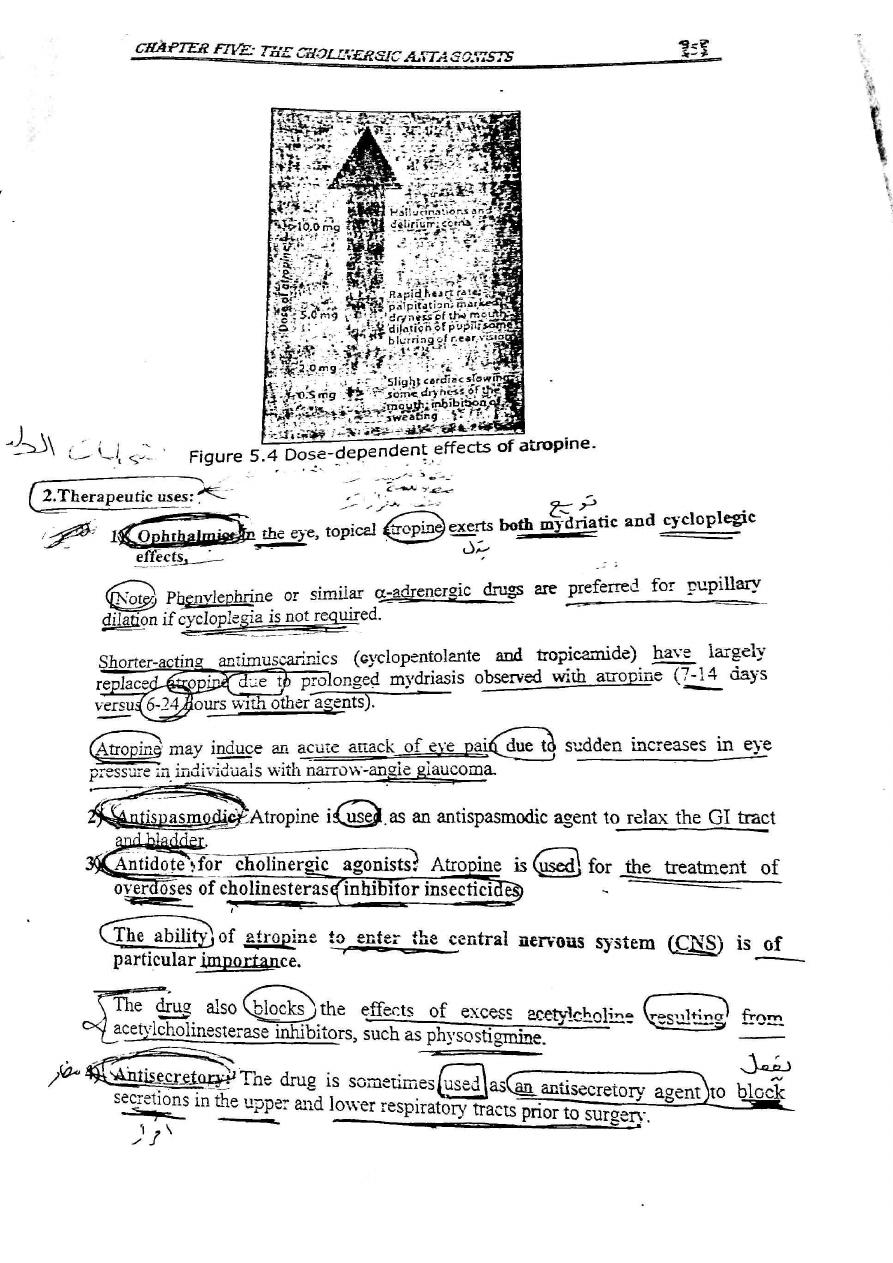 CHAPTER FIVE: THE CHOLINERGIC ANTAGONISTS
Dose of atropine
10.0 mg
Hallucinations and
delirium; coma
5.0 mg
Rapid heart rate;
palpitation; marked
dryness of the mouth;
dilation of pupil; some
blurring of near vision
2.0 mg
0.5 mg
Slight cardiac slowing;
some dryness of the
mouth; inhibition of
sweating
Figure 5.4 Dose-dependent effects of atropine.
2.Therapeutic uses:
1) Ophthalmic: In the eye, topical atropine exerts both mydriatic and cycloplegic
effects,
Note: Phenylephrine or similar α-adrenergic drugs are preferred for pupillary
dilation if cycloplegia is not required.
Shorter-acting antimuscarinics (cyclopentolante and tropicamide) have largely
replaced atropine due to prolonged mydriasis observed with atropine (7-14 days
versus 6-24 hours with other agents).
Atropine may induce an acute attack of eye pain due to sudden increases in eye
pressure in individuals with narrow-angle glaucoma.
2) Antispasmodic: Atropine is used as an antispasmodic agent to relax the GI tract
and bladder.
3) Antidote for cholinergic agonists: Atropine is used for the treatment of
overdoses of cholinesterase inhibitor insecticides
The ability of atropine to enter the central nervous system (CNS) is of
particular importance.
The drug also blocks the effects of excess acetylcholine resulting from
acetylcholinesterase inhibitors, such as physostigmine.
4) Antisecretory: The drug is sometimes used as an antisecretory agent to block
secretions in the upper and lower respiratory tracts prior to surgery.